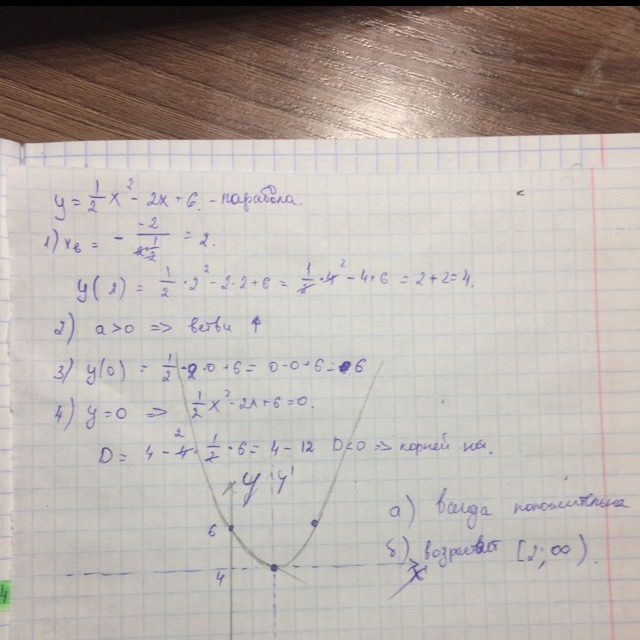 y = 1/2 x² - 2x + 6. - парабола.
1) xв = - -2 / 2·1/2 = 2.
y(2) = 1/2 · 2² - 2·2 + 6 = 1/2 · 4 - 4 + 6 = 2 + 2 = 4.
2) a > 0 => ветви ↑
3) y(0) = 1/2 · 0 + 6 = 0 - 0 + 6 = 6
4) y = 0 => 1/2 x² - 2x + 6 = 0.
D = 4 - 4 · 1/2 · 6 = 4 - 12 D < 0 => корней
y 'y'
а) всегда положительна
6
б) возрастает [2; ∞).
x
4
4